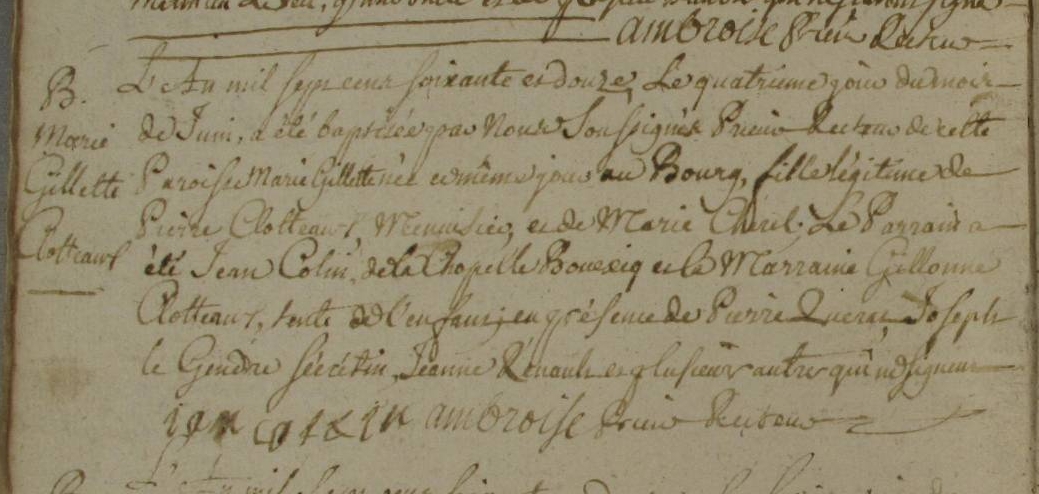 ambroise Prieur Recteur
B. L'An mil sept cent soixante et douze, Le quatrieme jour du mois
Marie de Juin, a été baptisée par Nous Soussignés Prieur Recteur de cette
Gillette Paroisse Marie Gillette née ce même jour au Bourg, fille légitime de
Clotteaux Pierre Clotteaux, Menuisier, et de Marie Cherel; Le Parrain a
été Jean Colin, de la Chapelle Bouexiq et la Marraine Gillonne
Clotteaux, tente de l'enfant; en présence de Pierre Joseph
le Gendre sécrétin, Jeanne Rénault et plusieurs autres qui ne signent
ambroise Prieur Recteur